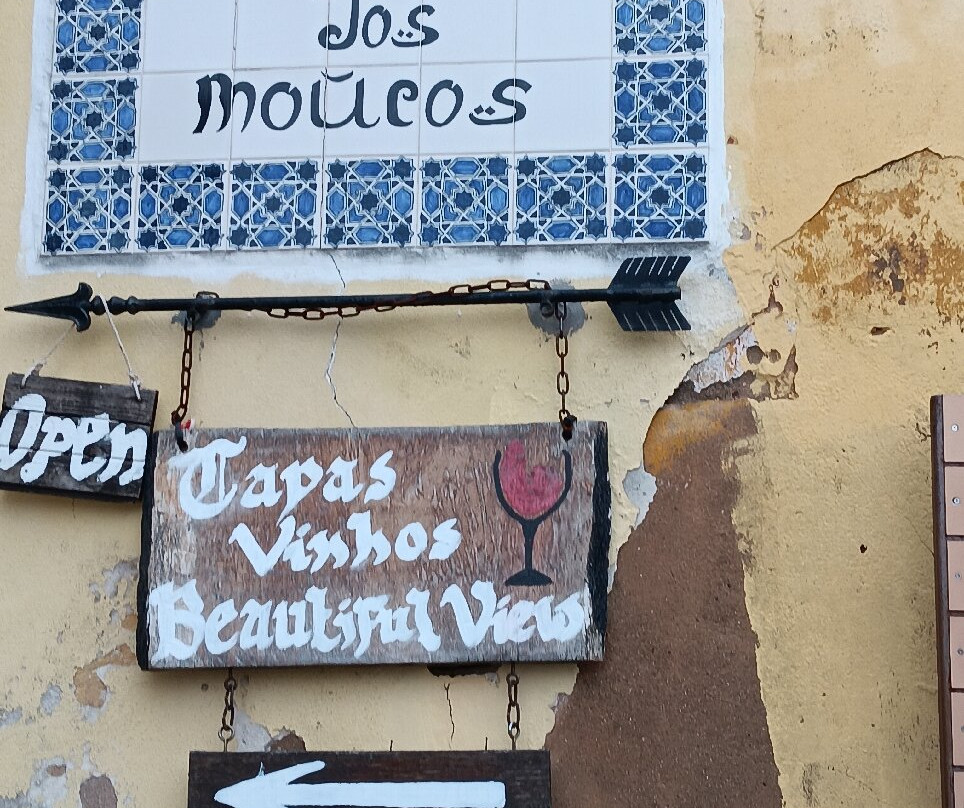 dos
Mouros
Open
Tapas
Vinhos
Beautiful View